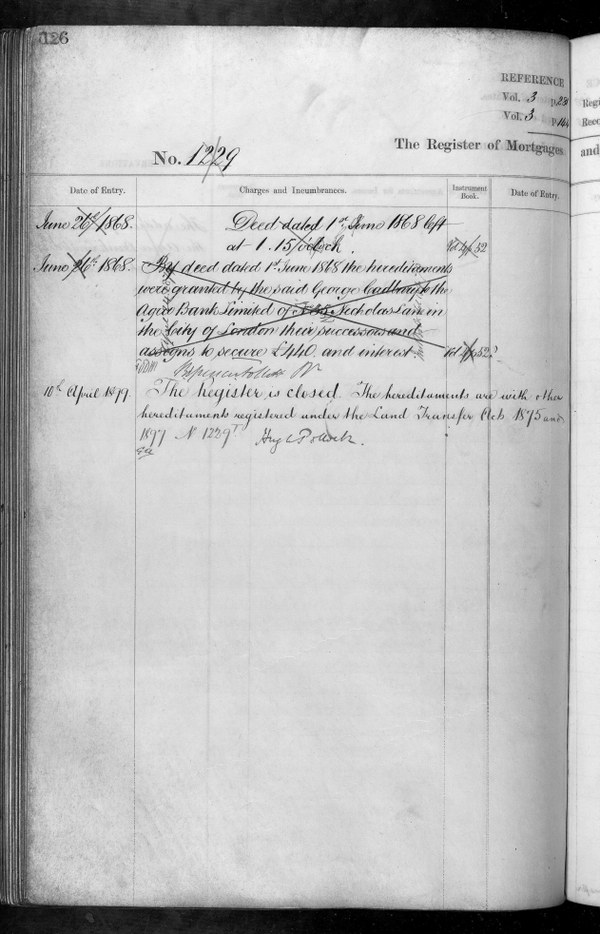 126
REFERENCE
Vol. 3 p 23
Vol. 3 p 144
The Register of Mortgages
and
No. 1229
Date of Entry.
Charges and Incumbrances.
Instrument Book.
Date of Entry.
June 26th 1868.
Deed dated 1st June 1868 left
at 1.15 o'clock. Vol 4/52
June 26th 1868.
By deed dated 1st June 1868 the hereditaments
were granted by the said George to the
Agra Bank Limited of Nicholas Lane in
the City of London their successors and
assigns to secure £440 and interest Vol 4/52
10th April 1899.
The Register is closed. The hereditaments are with other
hereditaments registered under the Land Transfer Acts 1875 and
1897 No 1229